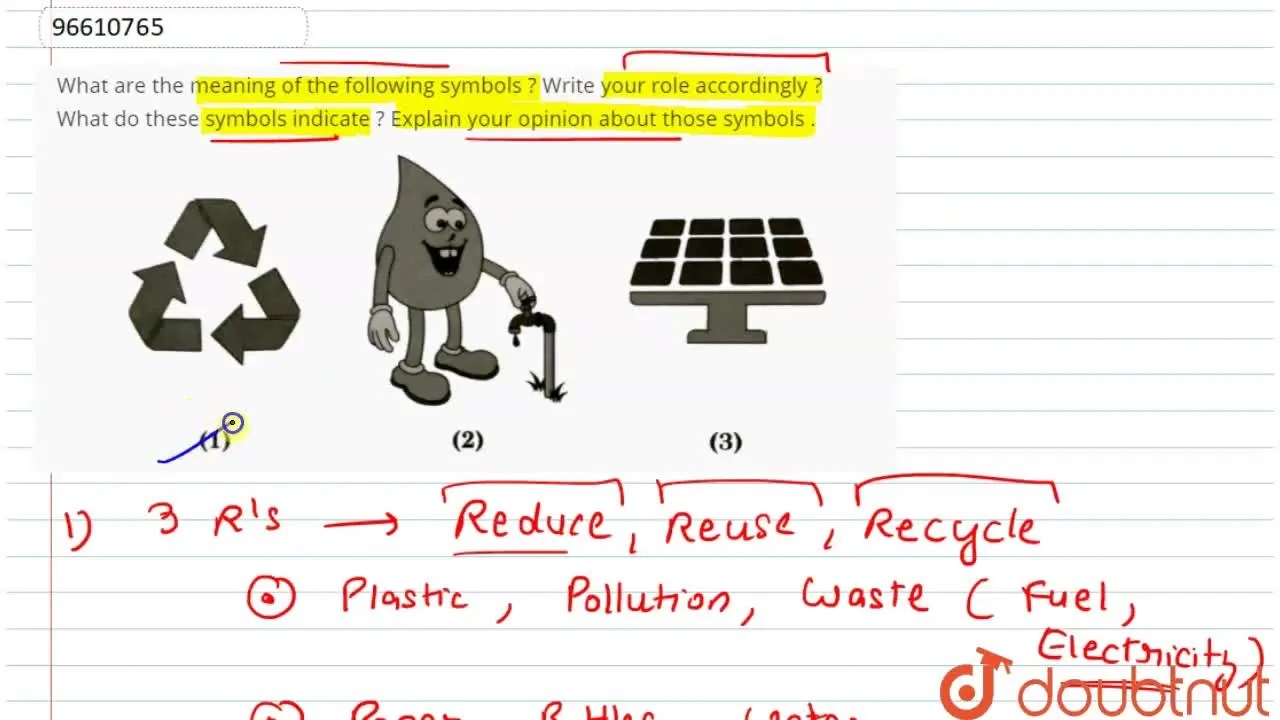 96610765
What are the meaning of the following symbols ? Write your role accordingly ?
What do these symbols indicate ? Explain your opinion about those symbols .
(1) (2) (3)
1) 3 R's → Reduce, Reuse, Recycle
Plastic, Pollution, Waste ( Fuel,
Electricity)
doubtnut